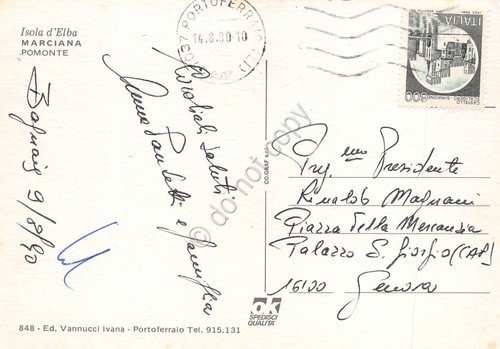 Isola d'Elba
MARCIANA
POMONTE
57037 PORTOFERRAIO (LI)
14.8.90-10
ITALIA
600
Cordiali saluti
e famiglia
9/8/90
Preg.mo Presidente
Rinaldo Magnani
Piazza della Mercanzia
Palazzo S. Giorgio (CAP)
16100 Genova
do not copy
CO.GRAF
OK
SPEDISCI
QUALITÀ
848 - Ed. Vannucci Ivana - Portoferraio Tel. 915.131